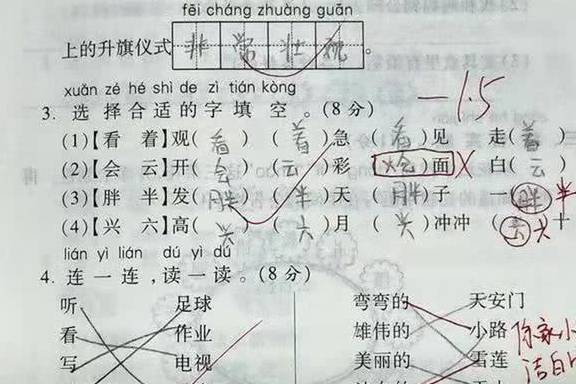 fēi cháng zhuàng guān
上的升旗仪式 非 常 壮 观 。
xuǎn zé hé shì de zì tián kòng
3. 选 择 合 适 的 字 填 空 。(8 分)
-1.5
(1)【看 着】观( 看 ) ( 着 )急 ( 看 )见 走( 着 )
(2)【会 云】开( 会 ) ( 云 )彩 ( 会 )面 白( 云 )
(3)【胖 半】发( 胖 ) ( 半 )天 ( 胖 )子 一( 胖 半
(4)【兴 六】高( 兴 ) ( 六 )月 ( 兴 )冲冲 ( 六 十
lián yì lián dú yì dú
4. 连 一 连 , 读 一 读 。(8 分)
听 足球 弯弯的 天安门
看 作业 雄伟的 小路
写 电视 美丽的 雪莲
洁白